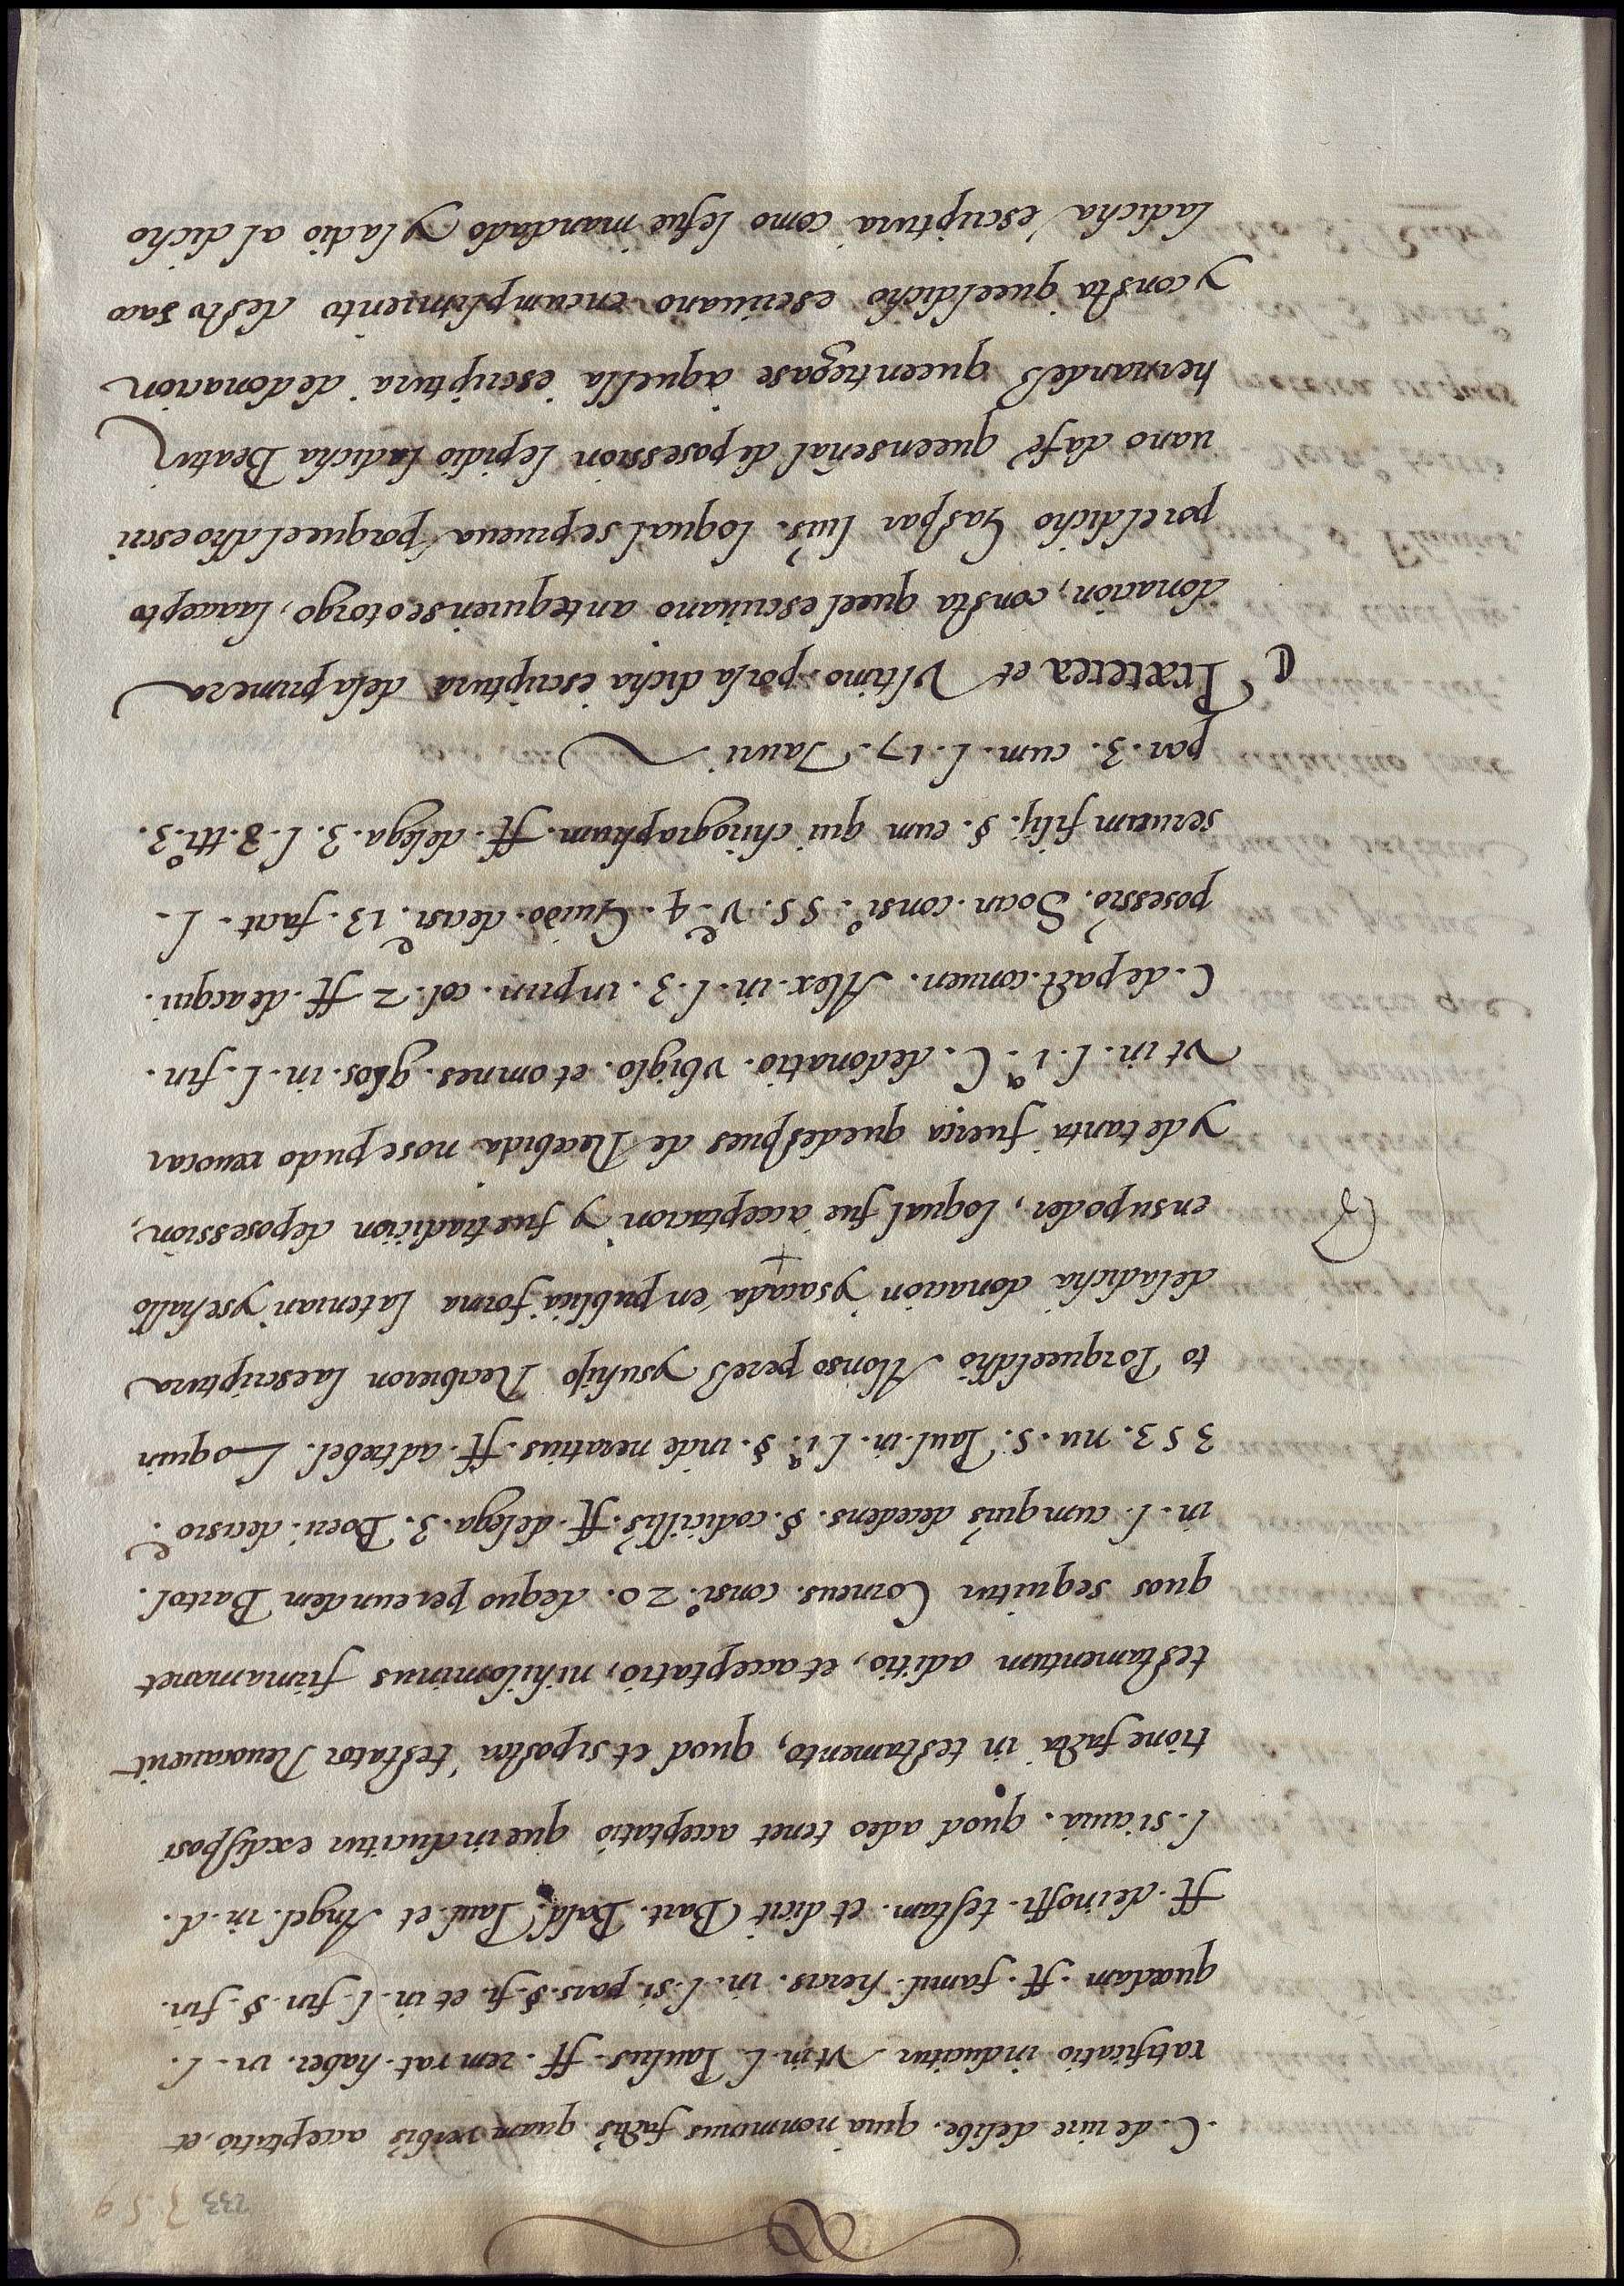 233
359
C. de iure delibe. quia non minus factis quam verbis acceptatio, et
ratificatio inducitur vt in. l. Paulus. ff. rem rat. haber. in. l.
quædam. ff. famil. hercis. in. l. si. pars. §. fi. et in. l. fin. §. fin.
ff. de inoffi. testam. et dicit Bart. Bald. Paul. et Angel. in. d.
l. si auia. quod adeo tenet acceptatio que inducitur ex disposi
tione facta in testamento, quod et si postea testator Reuocauerit
testamentum aditio, et acceptatio, nihilominus firma manet
quos sequitur Corneus. consi.º 20. de quo per eundem Bartol.
in. l. cum quis decedens. §. codicillis. ff. de lega. 3. Boeri. decisio.e
353. nu. 5. Paul. in. l. i.ª §. inde neratius. ff. ad trebel. Loquin
to Porque el dho Alonso peres y su hijo Recibieron la escriptura
de la dicha donacion y sacada en publica forma la tenian y se hallo
en su poder, lo qual fue acceptacion y fue tradicion de posession,
y de tanta fuerça que despues de Recebida no se pudo reuocar
vt in. l. i.ª C. de donatio. vbi glo. et omnes. glos. in. l. fin.
C. de pact. conuen. Alex. in. l. 3. in prin. col. 2 ff. de acqui.
posessio. Socin. consi.º 55. vº. 4. Guido. decisi.e 13. facit. l.
seruum filij. §. eum qui chirographum. ff. de lega. 3. l. 8. tit.º 3.
par. 3. cum. l. 17. Tauri.
Præterea et Vltimo. por la dicha escriptura de la primera
donacion, consta que el escriuano ante quien se otorgo, la accepto
por el dicho Gaspar luis. lo qual se prueua porque el dho escri
uano da fe que en señal de posession le pidio la dicha Beatriz
hernandes que entregase aquella escriptura de donacion
y consta que el dicho escriuano en cumplimiento desto saco
la dicha escriptura como le fue mandado y la dio al dicho